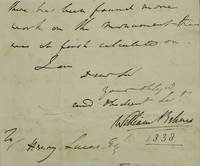 there has been found more
work on the monument than
was at first calculated on.
I am
Dear Sir
your oblig'd
and obedient St
William Behnes
To
Henry Lucas Esq
1838